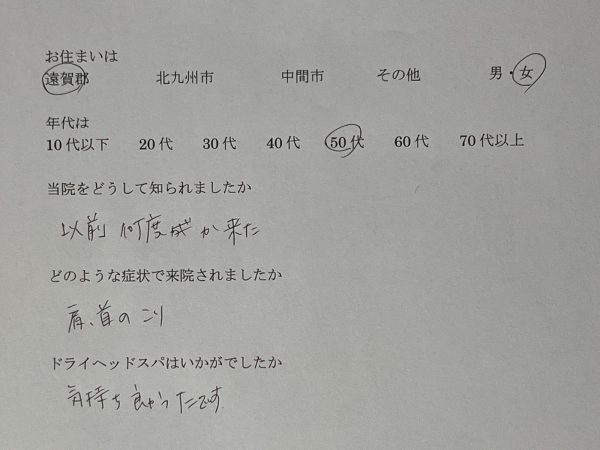 お住まいは
遠賀郡 北九州市 中間市 その他 男・女
年代は
10代以下 20代 30代 40代 50代 60代 70代以上
当院をどうして知られましたか
以前 何度か来た
どのような症状で来院されましたか
肩、首のこり
ドライヘッドスパはいかがでしたか
気持ち良かったです。